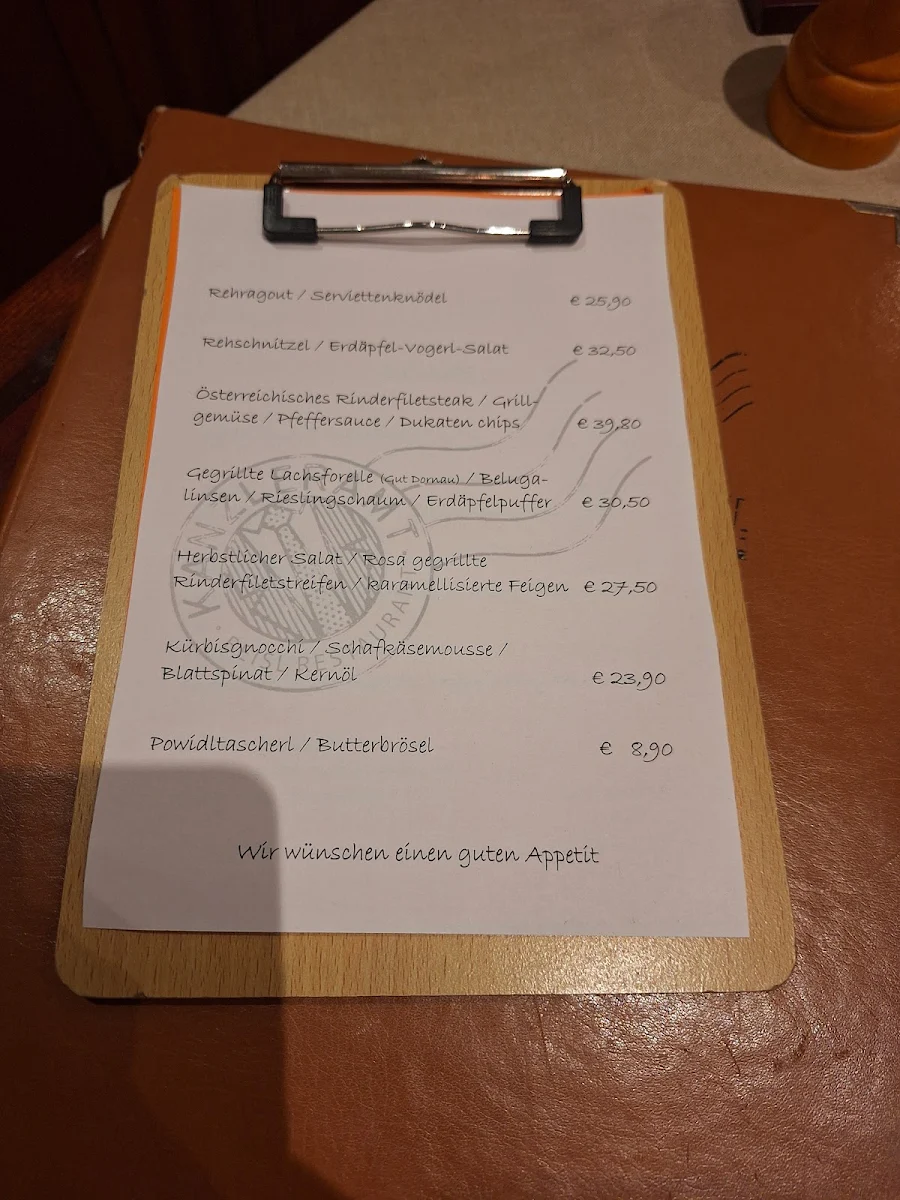 Rehragout / Serviettenknödel € 25,90
Rehschnitzel / Erdäpfel-Vogerl-Salat € 32,50
Österreichisches Rinderfiletsteak / Grill-
gemüse / Pfeffersauce / Dukaten chips € 39,80
Gegrillte Lachsforelle (Gut Dornau) / Beluga-
linsen / Rieslingschaum / Erdäpfelpuffer € 30,50
Herbstlicher Salat / Rosa gegrillte
Rinderfiletstreifen / karamellisierte Feigen € 27,50
Kürbisgnocchi / Schafkäsemousse /
Blattspinat / Kernöl € 23,90
Powidltascherl / Butterbrösel € 8,90
Wir wünschen einen guten Appetit
KANZLERAMT
BEISL RESTAURANT